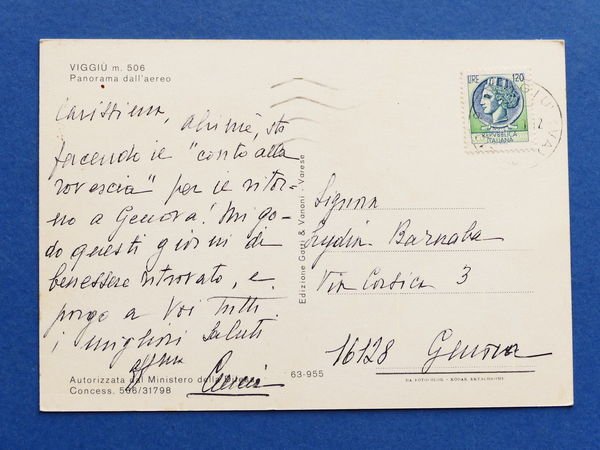 VIGGIÙ m. 506
Panorama dall'aereo
Carissima, ahimè, sto
facendo il "conto alla
rovescia" per il ritor-
no a Genova! Mi go-
do questi giorni di
benessere ritrovato, e
porgo a Voi tutti
i migliori saluti
aff.ma
Autorizzata dal Ministero delle
Concess. 506/31798
Edizione Gatti & Vanoni - Varese
63-955
LIRE 120
REPVBBLICA
ITALIANA
Signora
Lydia Barnaba
Via Corsica 3
16128 Genova
DA FOTOCOLOR - KODAK EKTACHROME